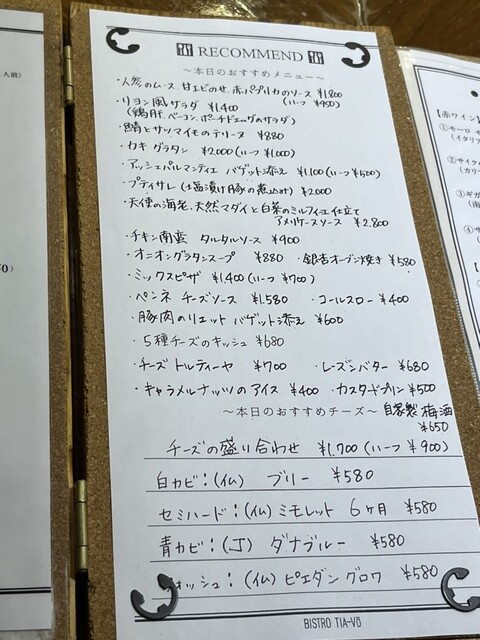 RECOMMEND
～本日のおすすめメニュー～
・人参のムース 甘エビのせ 赤パプリカのソース ¥1,800
(ハーフ ¥950)
・リヨン風サラダ ¥1,400
(鶏肝、ベーコン、ポーチドエッグのサラダ)
・鯖とサツマイモのテリーヌ ¥880
・カキグラタン ¥2,000(ハーフ ¥1,000)
・アッシェパルマンティエ バゲット添え ¥1,100(ハーフ ¥500)
・プティサレ(塩漬け豚の煮込み) ¥2,000
・天使の海老、天然マダイと白菜のミルフィーユ仕立て
アメリケーヌソース ¥2,800
・チキン南蛮 タルタルソース ¥900
・オニオングラタンスープ ¥880 ・銀杏オーブン焼き ¥580
・ミックスピザ ¥1,400(ハーフ ¥700)
・ペンネ チーズソース ¥1,580 ・コールスロー ¥400
・豚肉のリエット バゲット添え ¥600
・5種チーズのキッシュ ¥680
・チーズトルティーヤ ¥700 ・レーズンバター ¥680
・キャラメルナッツのアイス ¥400 ・カスタードプリン ¥500
～本日のおすすめチーズ～ 自家製梅酒
¥650
チーズの盛り合わせ ¥1,700(ハーフ ¥900)
白カビ:(仏) ブリー ¥580
セミハード:(仏) ミモレット 6ヶ月 ¥580
青カビ:(J) ダナブルー ¥580
ォッシュ:(仏) ピエダングロワ ¥580
BISTRO TIA-VO
人前)
0)
【赤ワイン】
①モーロ
(イタリア
②サイクル
(カリ
③ギガ
(南
④サ